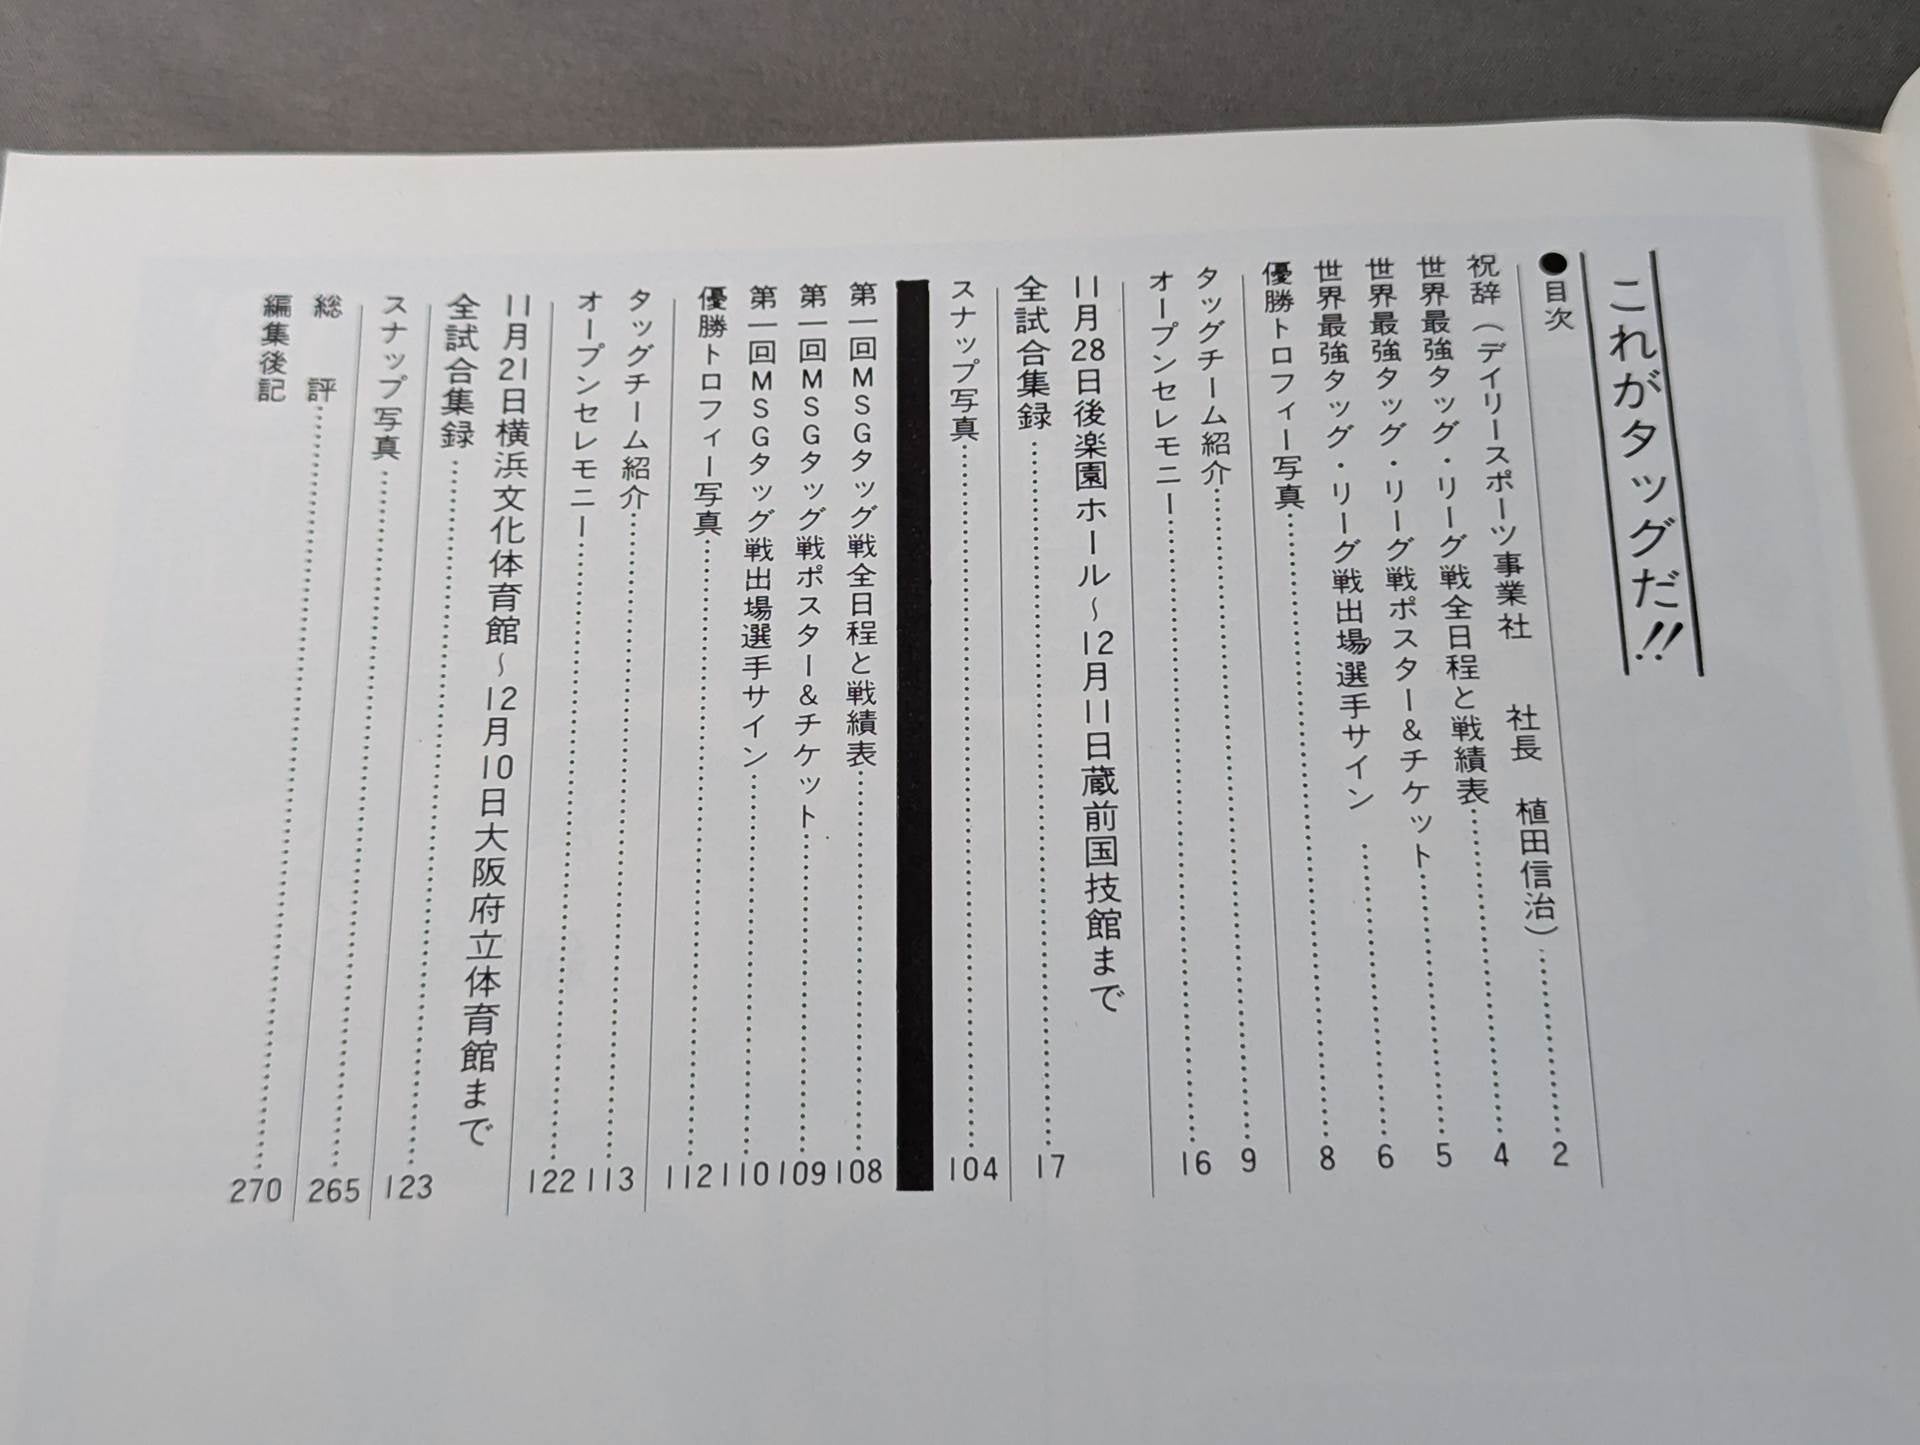 これがタッグだ!!
●目次
祝辞（デイリースポーツ事業社　社長　植田信治）……2
世界最強タッグ・リーグ戦全日程と戦績表……4
世界最強タッグ・リーグ戦ポスター&チケット……5
世界最強タッグ・リーグ戦出場選手サイン……6
優勝トロフィー写真……8
タッグチーム紹介……9
オープンセレモニー……16
11月28日後楽園ホール～12月11日蔵前国技館まで
全試合集録……17
スナップ写真……104
第一回MSGタッグ戦全日程と戦績表……108
第一回MSGタッグ戦ポスター&チケット……109
第一回MSGタッグ戦出場選手サイン……110
優勝トロフィー写真……112
タッグチーム紹介……113
オープンセレモニー……122
11月21日横浜文化体育館～12月10日大阪府立体育館まで
全試合集録……123
スナップ写真……265
総　評……270
編集後記